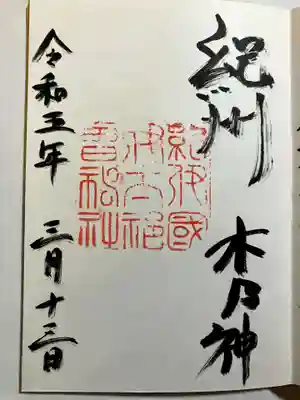 紀州 木乃神
紀伊國
伊太祁
曽神社
令和五年 三月十三日